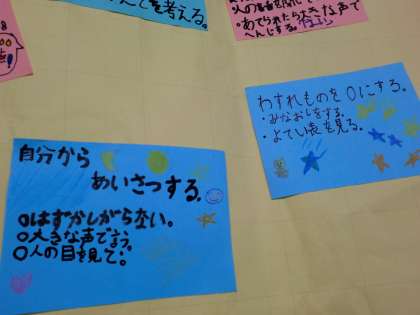 を考える。
あてられたら大きな声で
へんじする。
わすれものを0にする。
・みなおしをする。
・よてい表を見る。
自分から
あいさつする。
○はずかしがらない。
○大きな声で言う。
○人の目を見て。